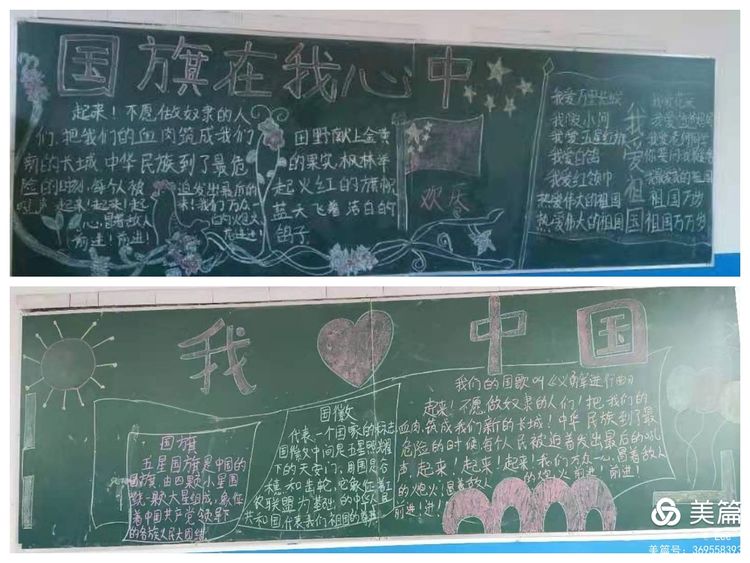 国旗在我心中
起来！不愿做奴隶的人
们，把我们的血肉筑成我们
新的长城，中华民族到了最危
险的时刻，每个人被迫发出最后的
吼声 起来！起来！起来！我们万众
一心，冒着敌人的炮火
前进！前进！
田野献上金黄
的果实，枫林举
起火红的旗帜
蓝天飞着洁白的
鸽子
欢庆
我爱祖国
我爱万里长城
我爱小河
我爱五星红旗
我爱红领巾
热爱伟大的祖国
热爱伟大的祖国
我爱花朵
祖国万岁
祖国万万岁
我 中国
国旗
五星国旗是中国的
国旗，由四颗小星围
绕一颗大星组成，象征
着中国共产党领导下
的各族人民大团结
国徽
代表一个国家的标志
国徽中间是五星照耀
下的天安门，周围是谷
穗和齿轮，它象征着工
农联盟为基础的中华人民
共和国代表我们祖国的尊严
我们的国歌叫《义勇军进行曲》
起来！不愿做奴隶的人们！把我们的
血肉，筑成我们新的长城！中华民族到了最
危险的时候，每个人民被迫着发出最后的吼
声，起来！起来！起来！我们万众一心，冒着敌人
的炮火，冒着敌人的炮火前进！前进！
前进！进！
美篇
美篇号：369558393